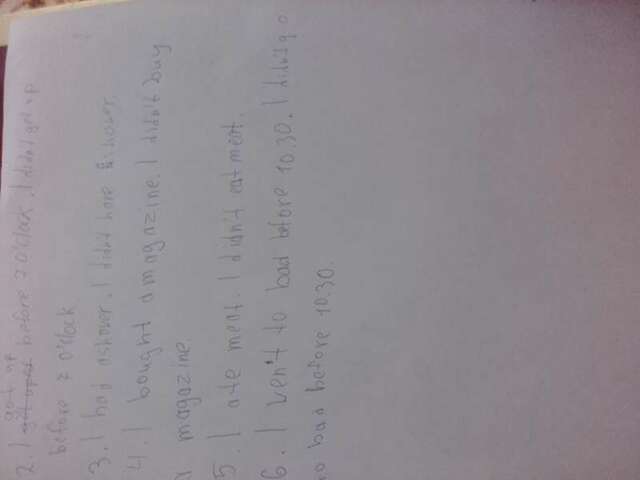 got up
2. I get upet before 7 o'clock. I didn't get up
before 7 o'clock
3. I had ashover. I didn't have shower.
4. I bought a magazine. I didn't buy
magazine.
5. I ate meat. I didn't eat meat.
6. I ven't to bad before 10.30. I didn't go
to bad before 10.30.